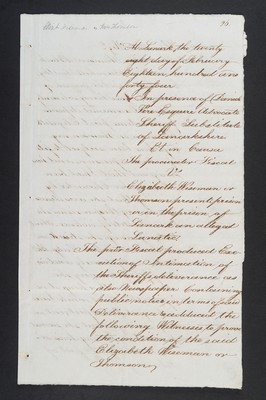 At Lanark, the twenty
eight day of February
Eighteen hundred and
forty four
In presence of
Vere Esquire Advocate
Sheriff Substitute
of Lanarkshire
In Causa
The procurator Fiscal
Vs
Elizabeth Wiseman or
Thomson present prison
er in the prison of
Lanark an alleged
Lunatic
The prtor Fiscal produced Exe
cution of Intimation of
the Sheriffs deliverance as
also Newspaper containing
public notice in terms of said
Deliverance & adduced the
following Witnesses to prove
the condition of the said
Elizabeth Wiseman or
Thomson,